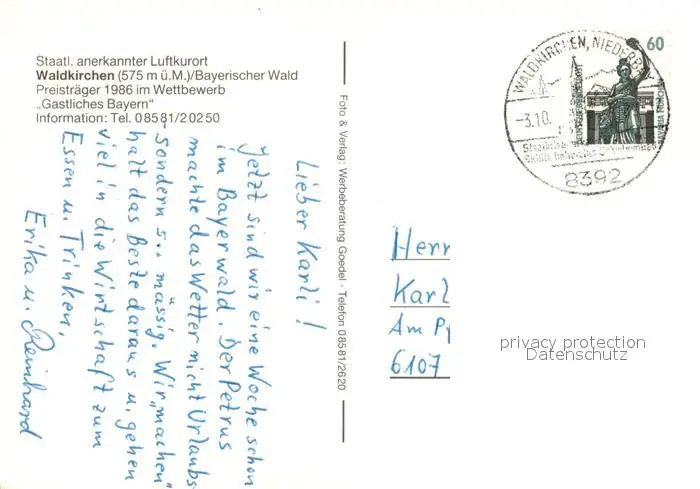 Staatl. anerkannter Luftkurort
Waldkirchen (575 m ü.M.)/Bayerischer Wald
Preisträger 1986 im Wettbewerb
„Gastliches Bayern“
Information: Tel. 08581/20250
Lieber Karli!
Jetzt sind wir eine Woche schon
im Bayerwald. Der Petrus
machte das Wetter nicht Urlaubs
sondern s.. mässig. Wir „machen“
halt das Beste daraus u. gehen
viel in die Wirtschaft zum
Essen u. Trinken.
Erika u. Reinhard
Foto & Verlag: Werbeberatung Goedel · Telefon 08581/2620
WALDKIRCHEN, NIEDERB
-3.10.
8392
60
DEUTSCHE BUNDESPOST
Herr
Karl
Am
6107
privacy protection
Datenschutz